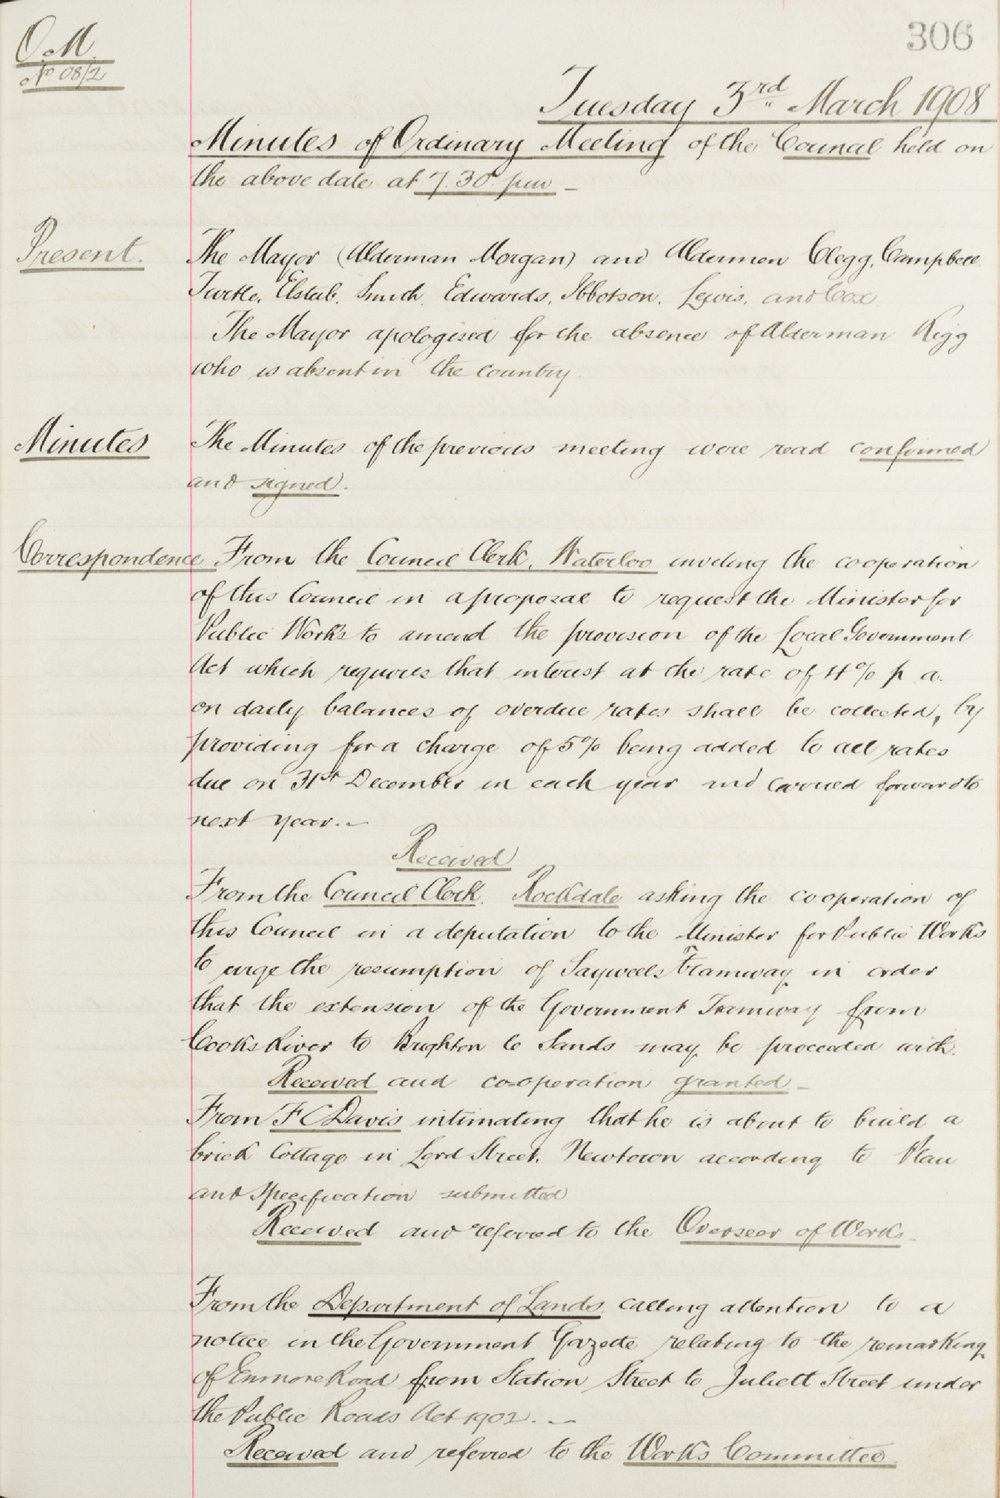 306
O.M.
No 08/2
Tuesday 3rd March 1908
Minutes of Ordinary Meeting of the Council held on
the above date at 7.30 pm -
Present. The Mayor (Alderman Morgan) and Aldermen Clegg, Campbell
Turtle, Elstub, Smith, Edwards, Ibbotson, Lewis, and Cox
The Mayor apologised for the absence of Alderman Rigg
who is absent in the country.
Minutes The Minutes of the previous meeting were read confirmed
and signed.
Correspondence From the Council Clerk, Waterloo inviting the cooperation
of this Council in a proposal to request the Minister for
Public Works to amend the provision of the Local Government
Act which requires that interest at the rate of 4% p a.
on daily balances of overdue rates shall be collected, by
providing for a charge of 5% being added to all rates
due on 31st December in each year and carried forward to
next year. -
Received
From the Council Clerk, Rockdale asking the cooperation of
this Council in a deputation to the Minister for Public Works
to urge the resumption of Saywells Tramway in order
that the extension of the Government Tramway from
Cooks River to Brighton le Sands may be proceeded with.
Received and co-operation granted -
From F C Davis intimating that he is about to build a
brick Cottage in Lord Street, Newtown according to Plan
and Specification submitted
Received and referred to the Overseer of Works.
From the Department of Lands calling attention to a
notice in the Government Gazette relating to the remarking
of Enmore Road from Station Street to Juliett Street under
the Public Roads Act 1902. -
Received and referred to the Works Committee.